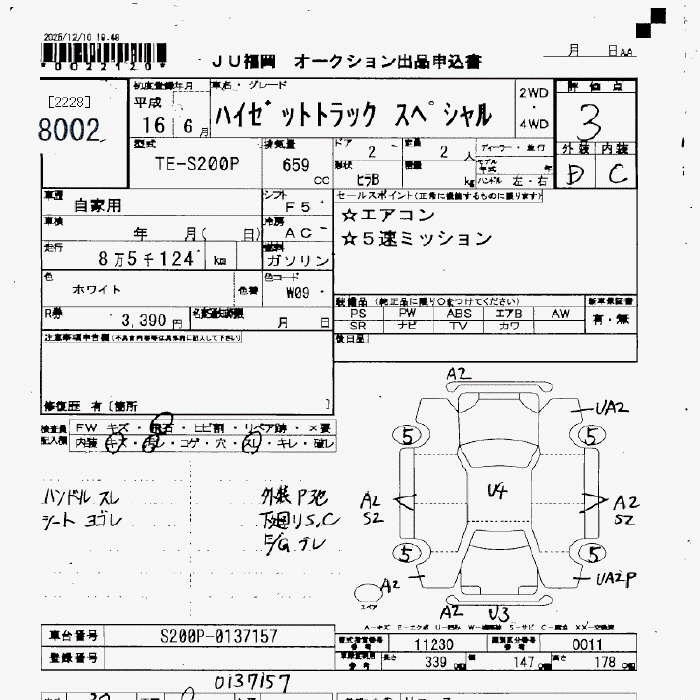 2025/12/10 19:48
*00221120*
JU福岡 オークション出品申込書
月 日
[2228]
8002
初度登録年月
平成
16 6月
車名・グレード
ハイゼットトラック スペシャル
2WD
・
4WD
評価点
3
外装 内装
D C
型式
TE-S200P
排気量
659 cc
ドア 2
形状 ピラB
定員 2 人
kg
ディーラー・並行
モデル年式 年
ハンドル 左・右
車歴 自家用
シフト F5
車検 年 月( 日)
冷房 AC
走行 8万5千124 km
燃料 ガソリン
セールスポイント(正常に機能するものに限ります)
☆エアコン
☆5速ミッション
色 ホワイト
色替
色コード W09
R券 3,390円
月 日
装備品 (純正品に限り○をつけてください)
PS PW ABS エアB AW
SR ナビ TV カワ
新車保証書
有・無
後日品
注意事項申告欄
修復歴 有〔箇所 〕
検査員記入欄
FW キズ・飛石・ヒビ割・リペア跡・×要
内装 キズ・ヨゴレ・コゲ・穴・スレ・キレ・破レ
ハンドル スレ
シート ヨゴレ
外装 P他
下廻り S,C
F/G ズレ
A2
UA2
5
5
U4
A2
S2
A2
S2
5
5
A2
エイア
UA2P
A2 U3
車台番号 S200P-0137157
登録番号
0137157
型式指定番号 11230
類別区分番号 0011
長さ 339 幅 147 高さ 178